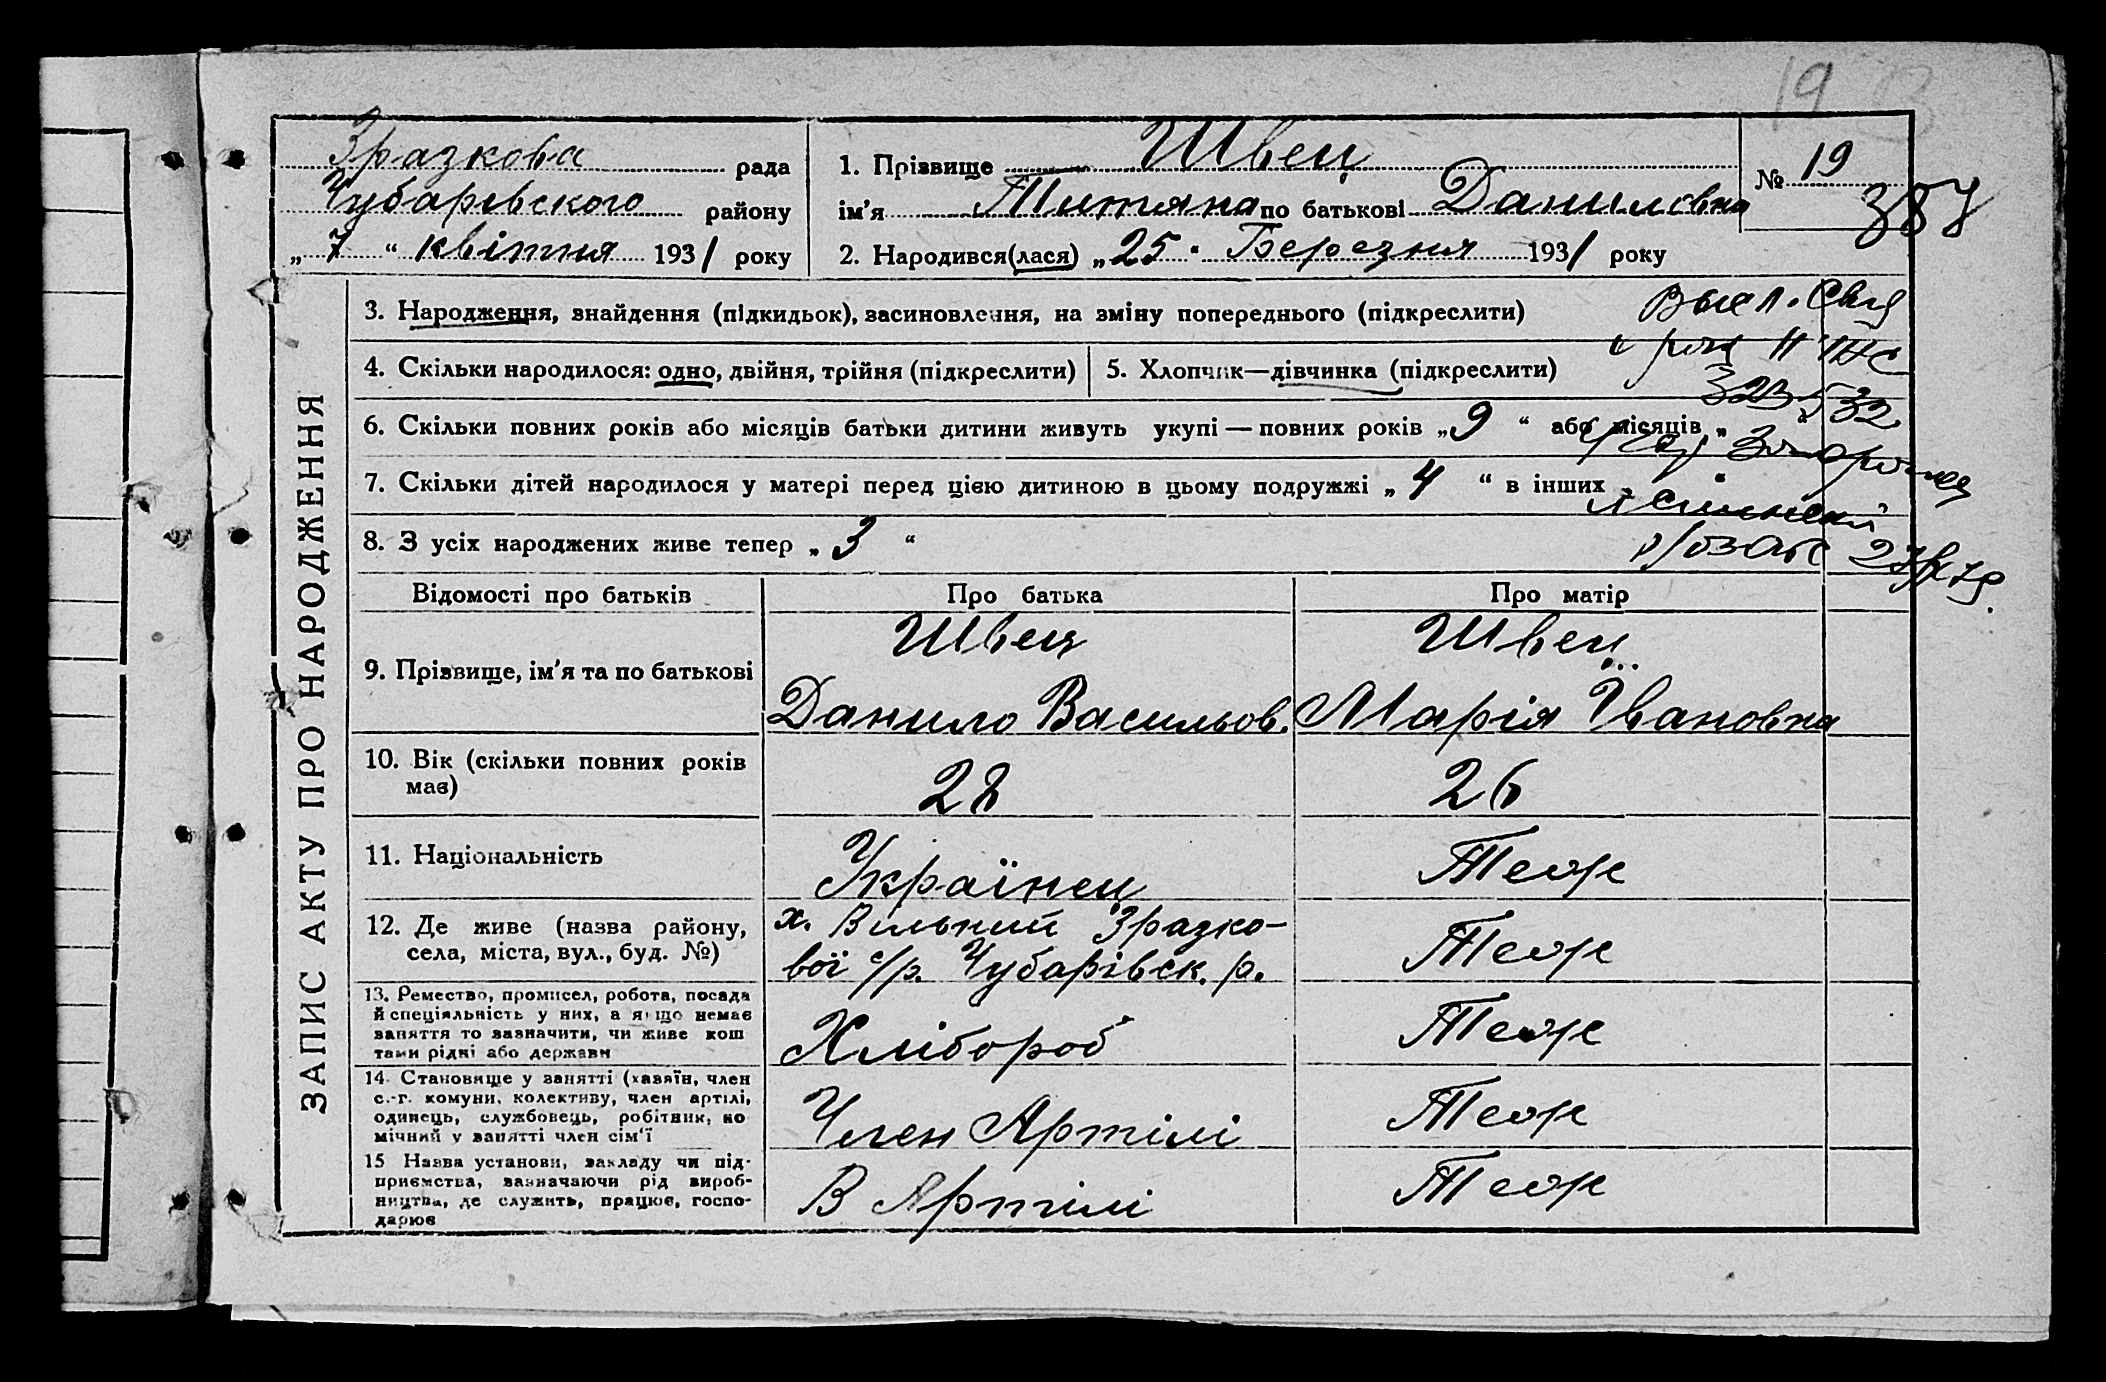 19
Зразкова рада
Чубарівского району
„ 7 “ квітня 1931 року
1. Прізвище Швец
ім'я Титяна по батькові Даниловна
2. Народився(лася) „ 25 “ Березня 1931 року
№ 19
387
ЗАПИС АКТУ ПРО НАРОДЖЕННЯ
3. Народження, знайдення (підкидьок), засиновлення, на зміну попереднього (підкреслити)
4. Скільки народилося: одно, двійня, трійня (підкреслити)
5. Хлопчик—дівчинка (підкреслити)
6. Скільки повних років або місяців батьки дитини живуть укупі — повних років „ 9 “ або місяців „ “
7. Скільки дітей народилося у матері перед цією дитиною в цьому подружжі „ 4 “ в інших „ “
8. З усіх народжених живе тепер „ 3 “
о рож
II
323532
Відомості про батьків
Про батька
Про матір
9. Прізвище, ім'я та по батькові
Швец
Данило Васильов.
Швец
Марія Івановна
10. Вік (скільки повних років
має)
28
26
11. Національність
Українец
Теж
12. Де живе (назва району,
села, міста, вул., буд. №)
х. Вильний Зразко-
вої с/р. Чубарівск. р.
Теж
13. Ремество, промисел, робота, посада
й спеціяльність у них, а якщо немає
заняття то зазначити, чи живе кош
тами рідні або держави
Хлібороб
Теж
14. Становище у занятті (хазяїн, член
с.-г. комуни, колективу, член артілі,
одинець, службовець, робітник, по
мічний у занятті член сім'ї
Член Артілі
Теж
15 Назва установи, закладу чи під-
приємства, зазначаючи рід вироб-
ництва, де служить, працює, госпо-
дарює
В Артілі
Теж